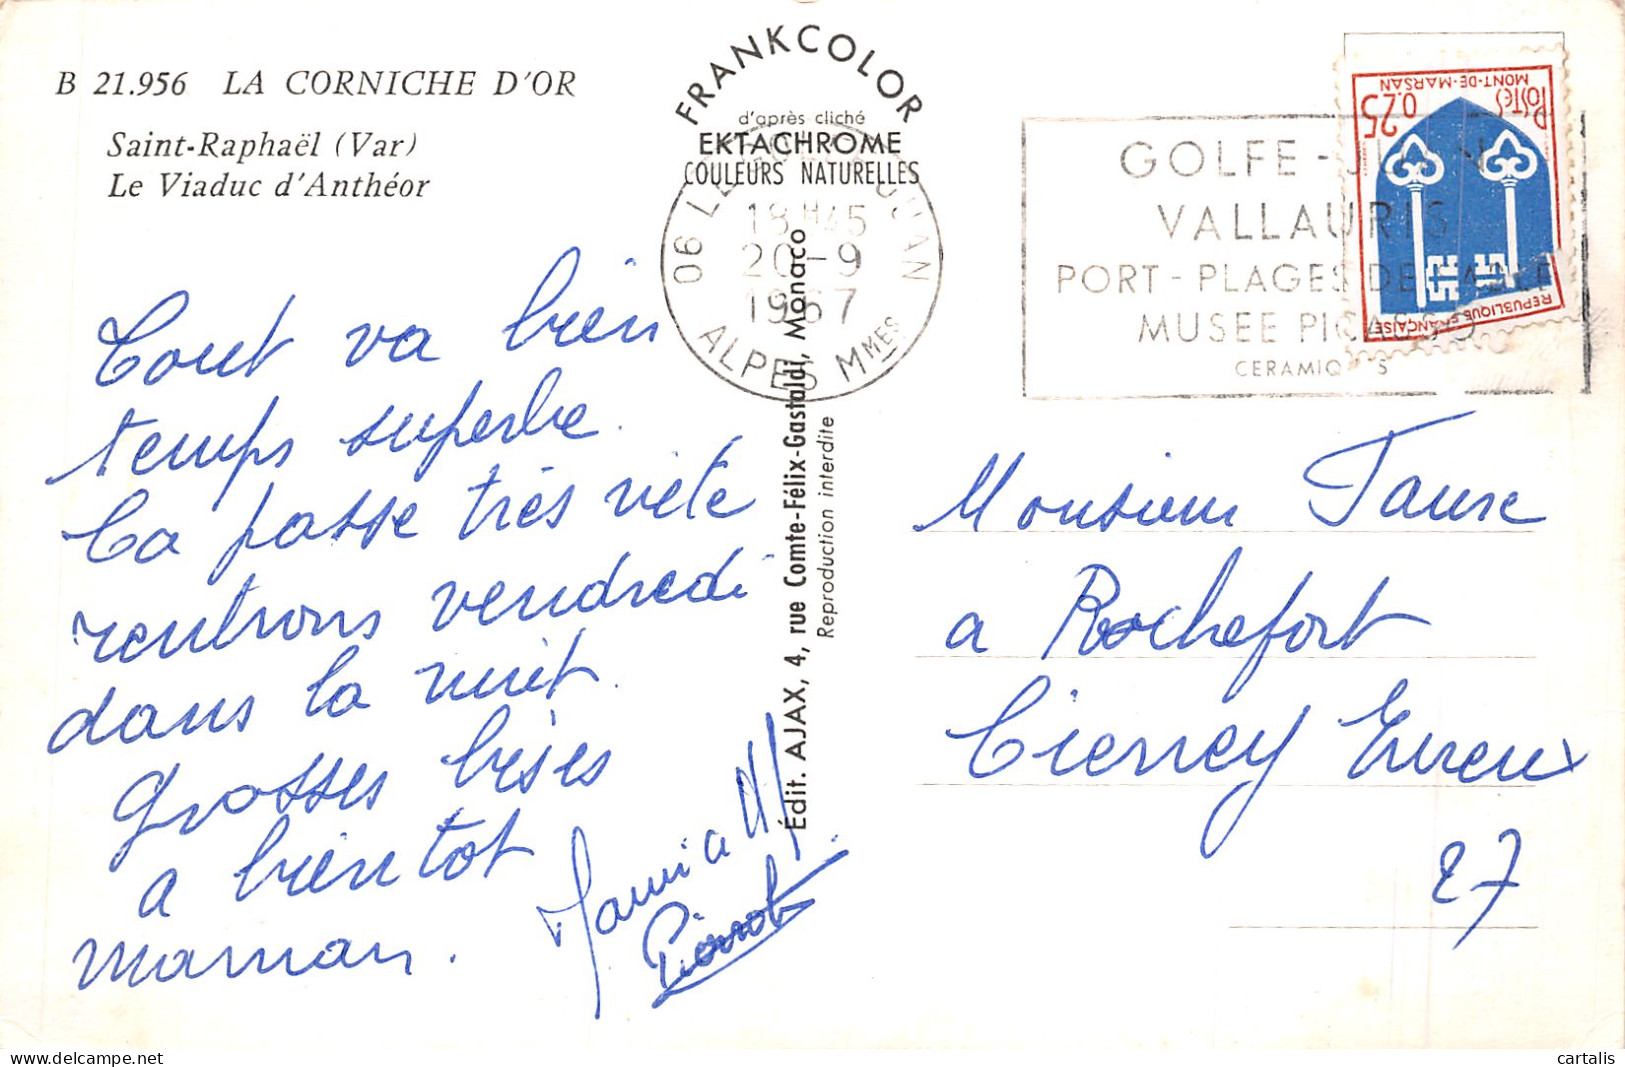 B 21.956 LA CORNICHE D'OR
Saint-Raphaël (Var)
Le Viaduc d'Anthéor
Tout va bien
temps superbe.
Ca passe très vite
rentrons vendredi
dans la nuit.
Grosses bises
a bientot
maman.
Pierrot
FRANKCOLOR
d'après cliché
EKTACHROME
COULEURS NATURELLES
Édit. AJAX, 4, rue Comte-Félix-Gastaldi, Monaco
Reproduction interdite
06 LE GOLFE JUAN
18H45
20-9
1967
ALPES MMES
GOLFE-JUAN
VALLAURIS
PORT-PLAGES DE SABLE
MUSEE PICASSO
CERAMIQUES
POSTES 0.25
MONT-DE-MARSAN
REPUBLIQUE FRANÇAISE
Monsieur Faure
a Rochefort
Cierrey Evreux
27
cartalis